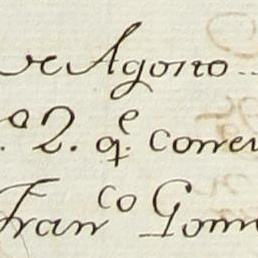 de Agosto
2. q.e corre
Fran.co Gom